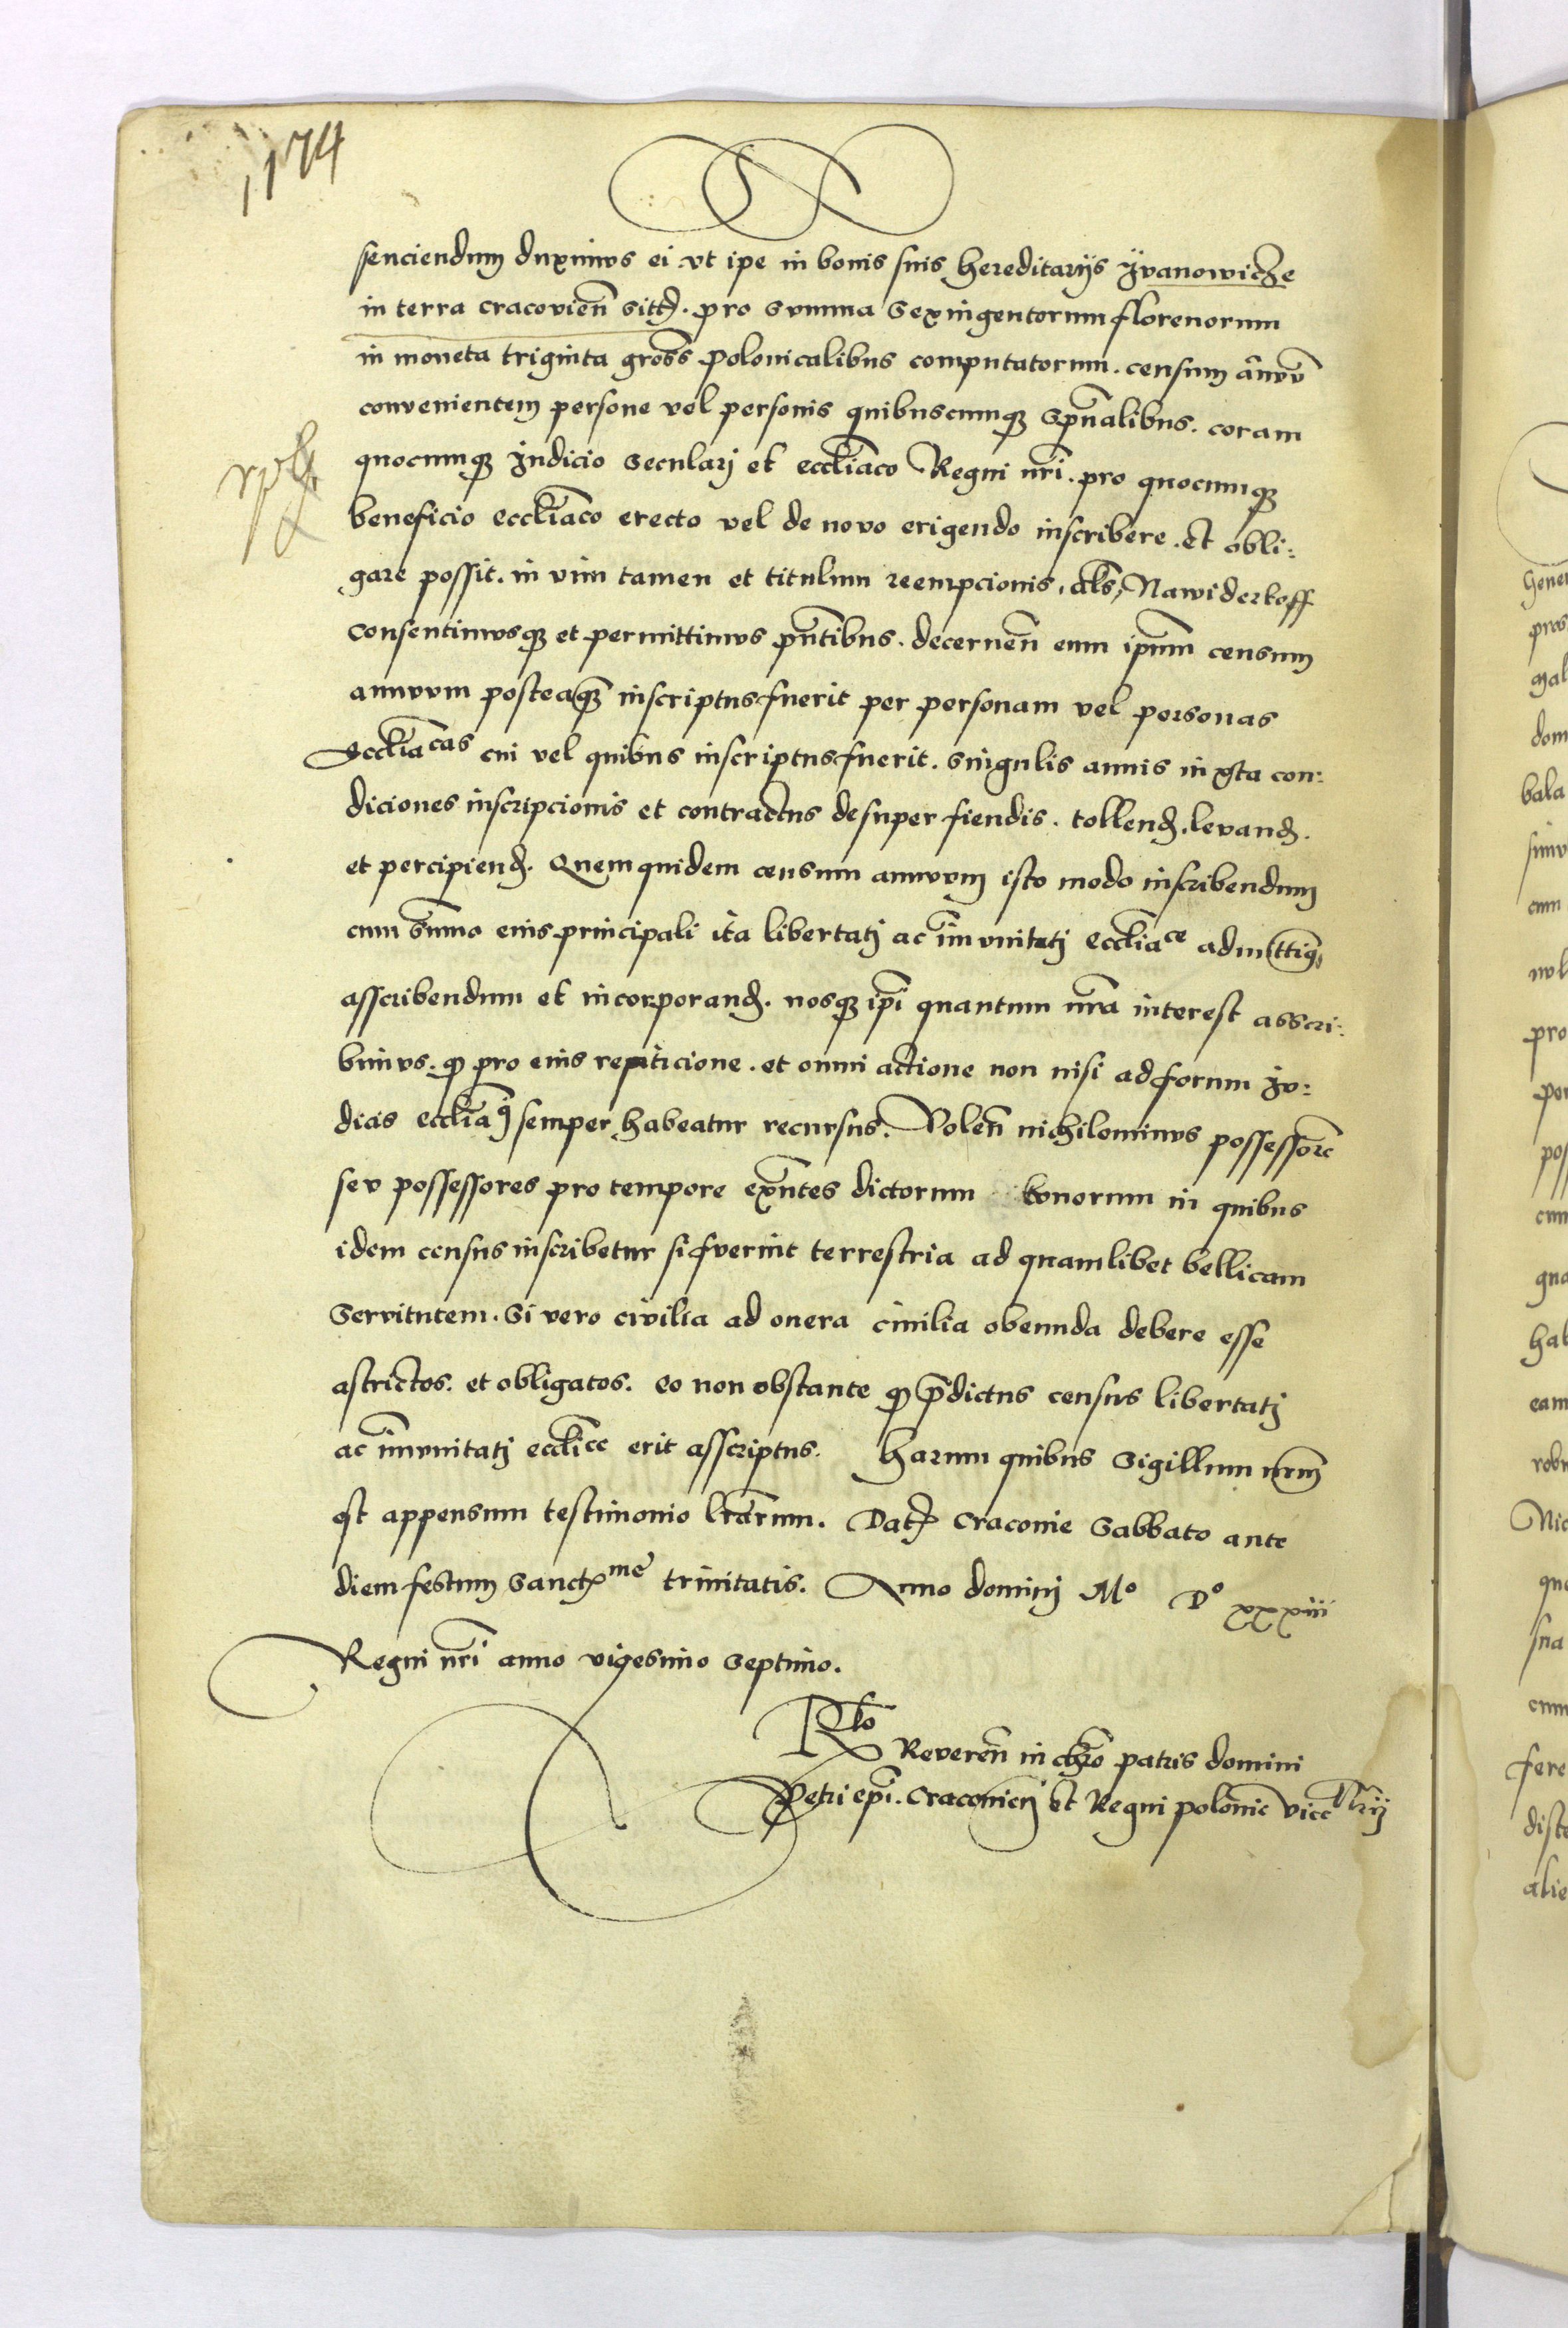 1174
senciendum duximus ei vt ipe in bonis suis hereditarijs Jvanowicze
in terra cracovien̄ sitt. pro summa sexingentorum florenorum
in moneta triginta gross polonicalibus computatorum. censum annuū
convenientem persone vel personis quibuscumqꝫ spūalibus. coram
quocumqꝫ Judicio secularj et eccliāco Regni nr̄i. pro quocumqꝫ
beneficio eccliāco erecto vel de novo erigendo inscribere. et obli:
gare possit. in vim tamen et titulum reempcionis, als, Nawiderkoff
consentimusqꝫ et permittimus pn̄tibus. decernen̄ eum ip̄um censum
annuum posteaqꝫ inscriptus fuerit per personam vel personas
Eccliācas cui vel quibus inscriptus fuerit. singulis annis iuxta con:
diciones inscripcionis et contractus desuper fiendis. tollend. levand.
et percipiend. Quem quidem censum annuum isto modo inscribendum
cum summo eius principali ita libertatj ac im̄unitatj eccliāce admittim9
asscribendum et incorporand. nosqꝫ ip̄i quantum nr̄a interest asscri:
bimus. ꝙ pro eius repeticione. et omni actione non nisi ad forum Ju:
dicis eccliācj semper habeatur recursus. Volen̄ nichilominus possessorē
seu possessores pro tempore exn̄tes dictorum bonorum in quibus
idem census inscribetur si fuerint terrestria ad quamlibet bellicam
servitutem. Si vero civilia ad onera civilia obeunda debere esse
astrictos. et obligatos. eo non obstante ꝙ p̄dictus census libertatj
ac im̄unitatj eccliē erit asscriptus. Harum quibus sigillum nr̄m
est appensum testimonio lr̄arum. Dat. Cracovie Sabbato ante
diem festum Sanctme trinitatis. Anno dominj Mo Do xxxiii
Regni nr̄i anno vigesimo septimo.
Rlo
Reveren̄ in chr̄o patris domini
Petri epi. Cracovien̄ et Regni polonie vice